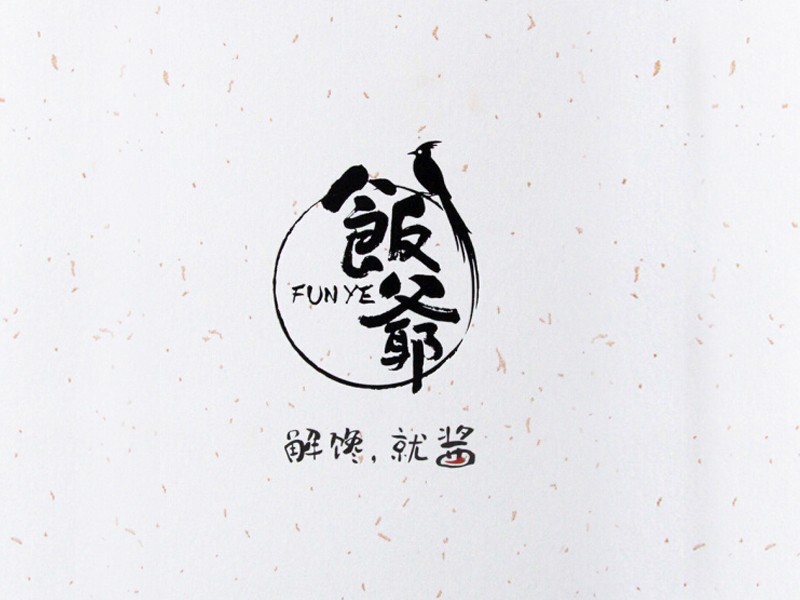 飯爺
FUN YE
解馋，就酱